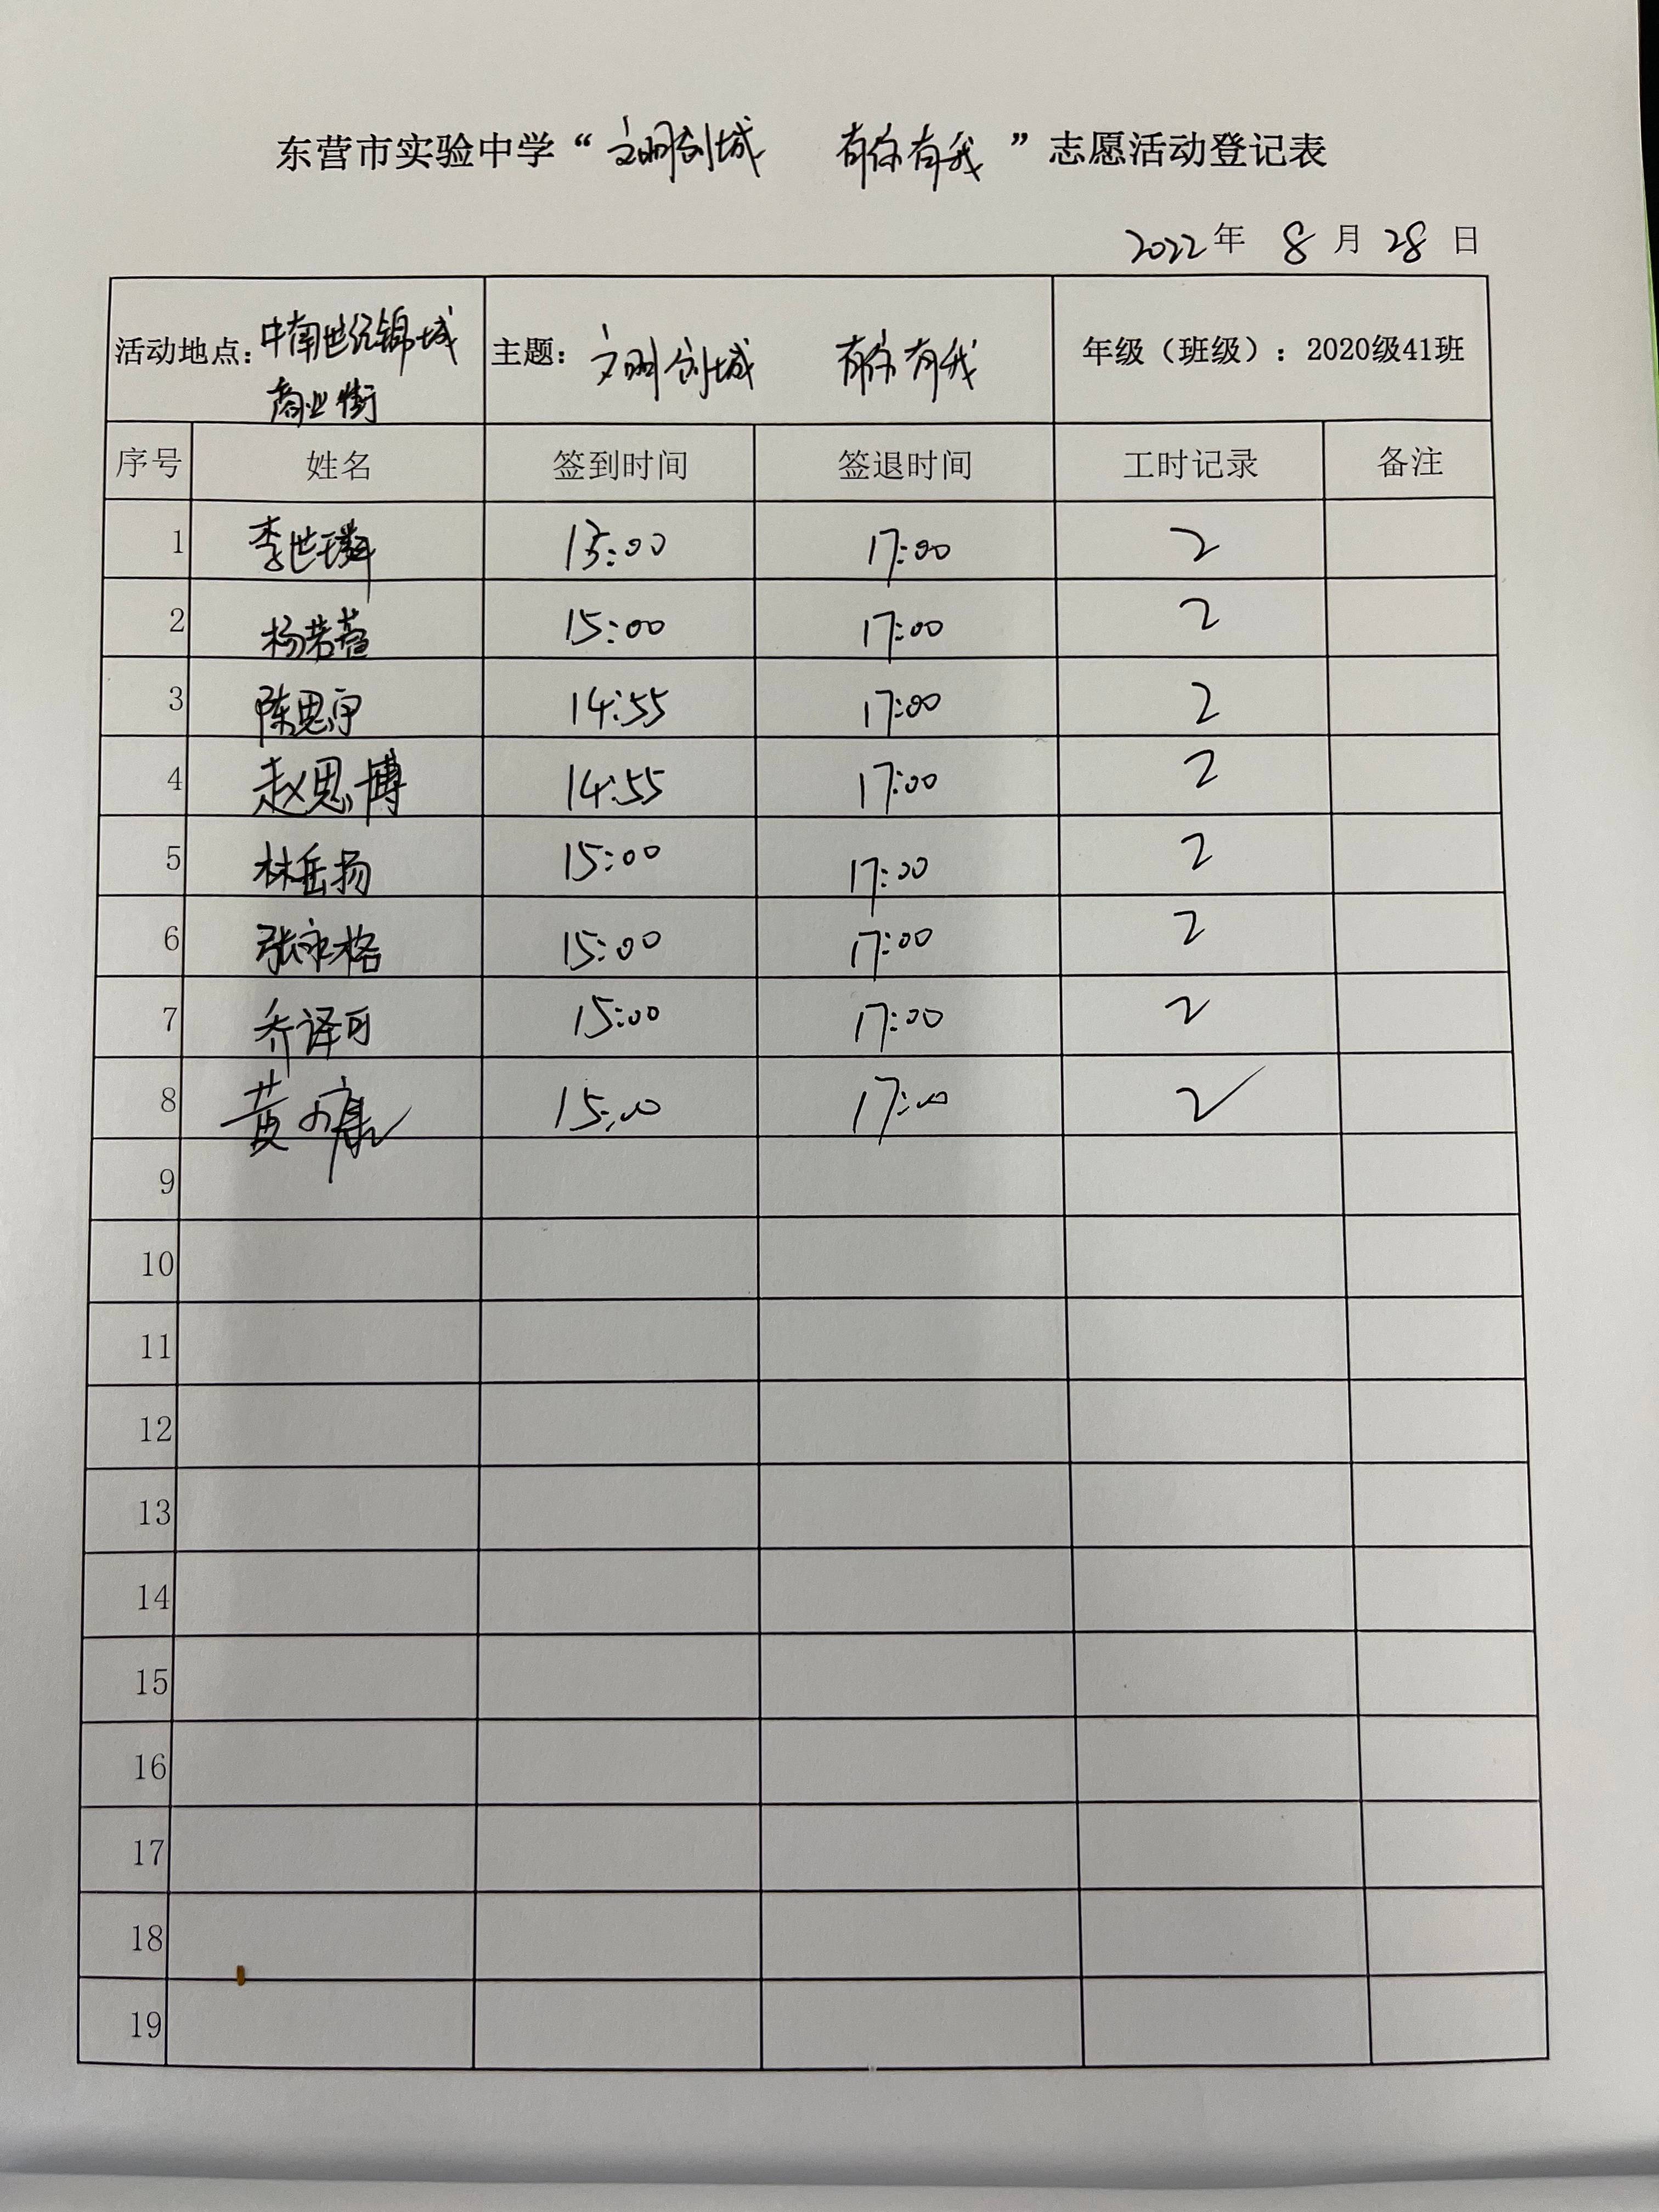 东营市实验中学“文明创城 有你有我”志愿活动登记表
2022年 8月28日
活动地点：中南世纪锦城 主题：文明创城 有你有我 年级（班级）：2020级41班
商业街
序号 姓名 签到时间 签退时间 工时记录 备注
1 李世璘 15:00 17:00 2
2 杨若萱 15:00 17:00 2
3 陈思宇 14:55 17:00 2
4 赵思博 14:55 17:00 2
5 林岳扬 15:00 17:00 2
6 张永格 15:00 17:00 2
7 乔译可 15:00 17:00 2
8 黄 15:00 17:00 2
9
10
11
12
13
14
15
16
17
18
19